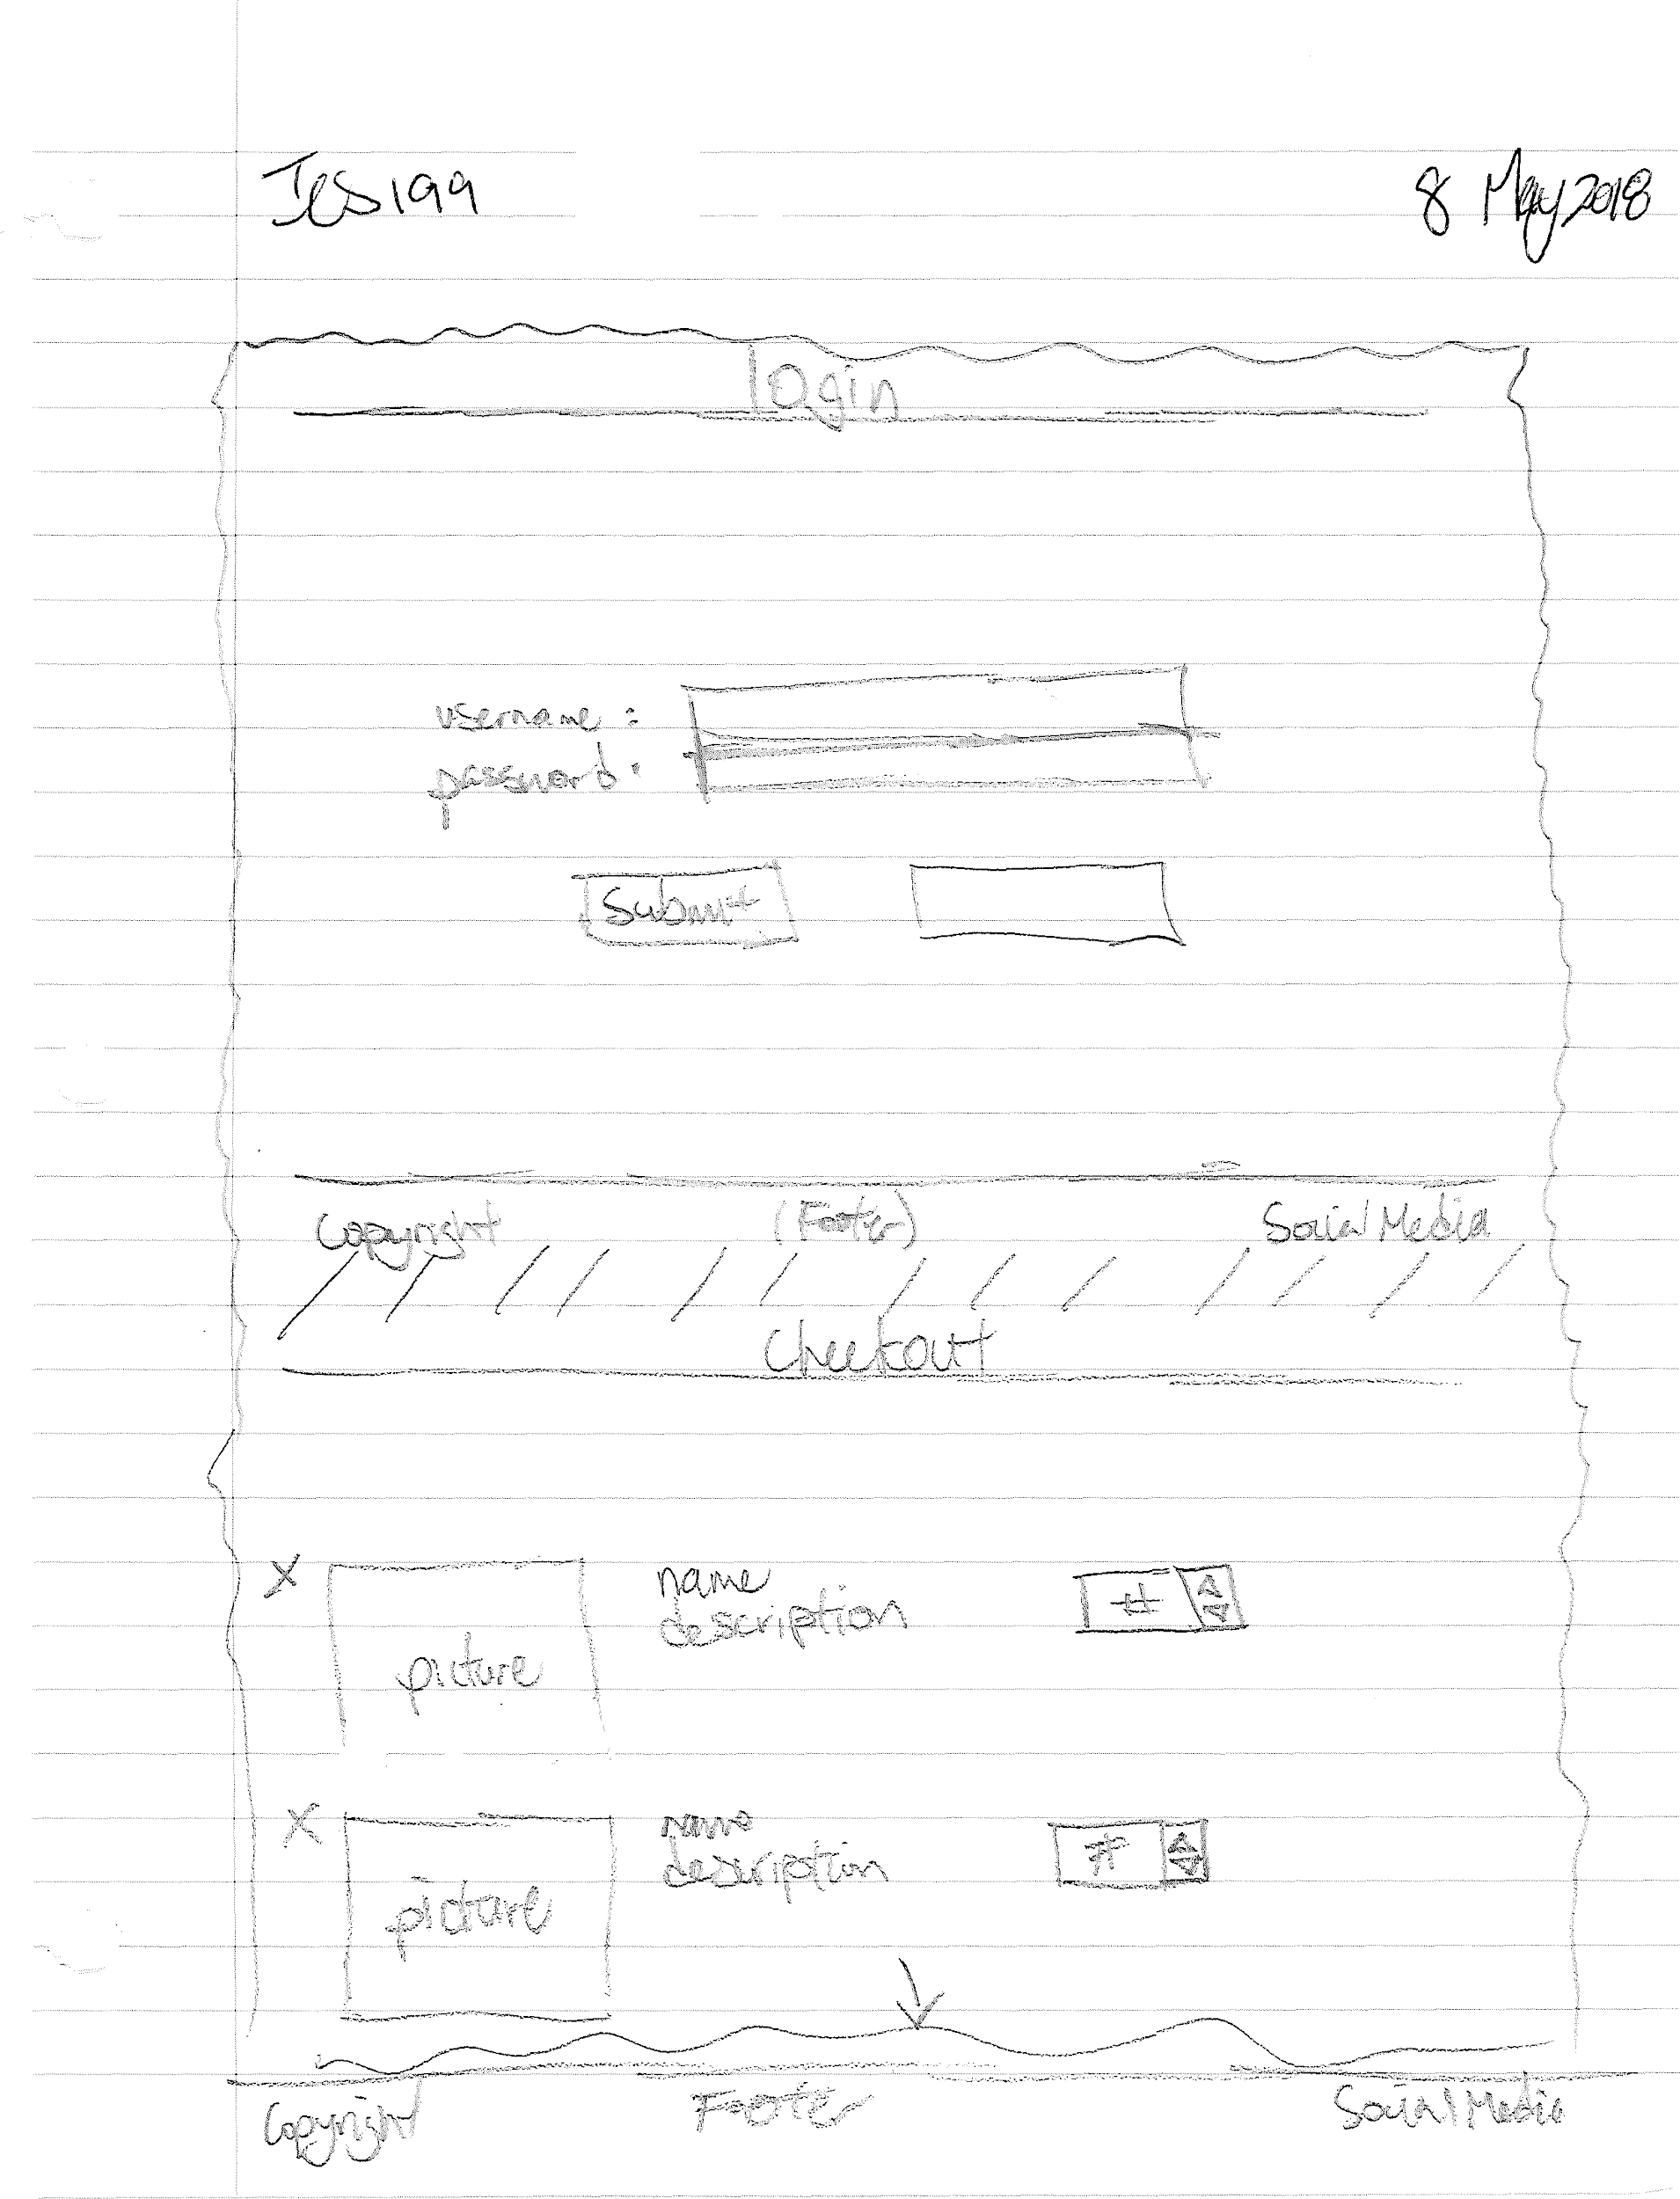 ICS199 8 May 2018
login
username :
password :
Submit
Copyright (Footer) Social Media
Checkout
X name #
description
picture
X name #
description
picture
Copyright Footer Social Media